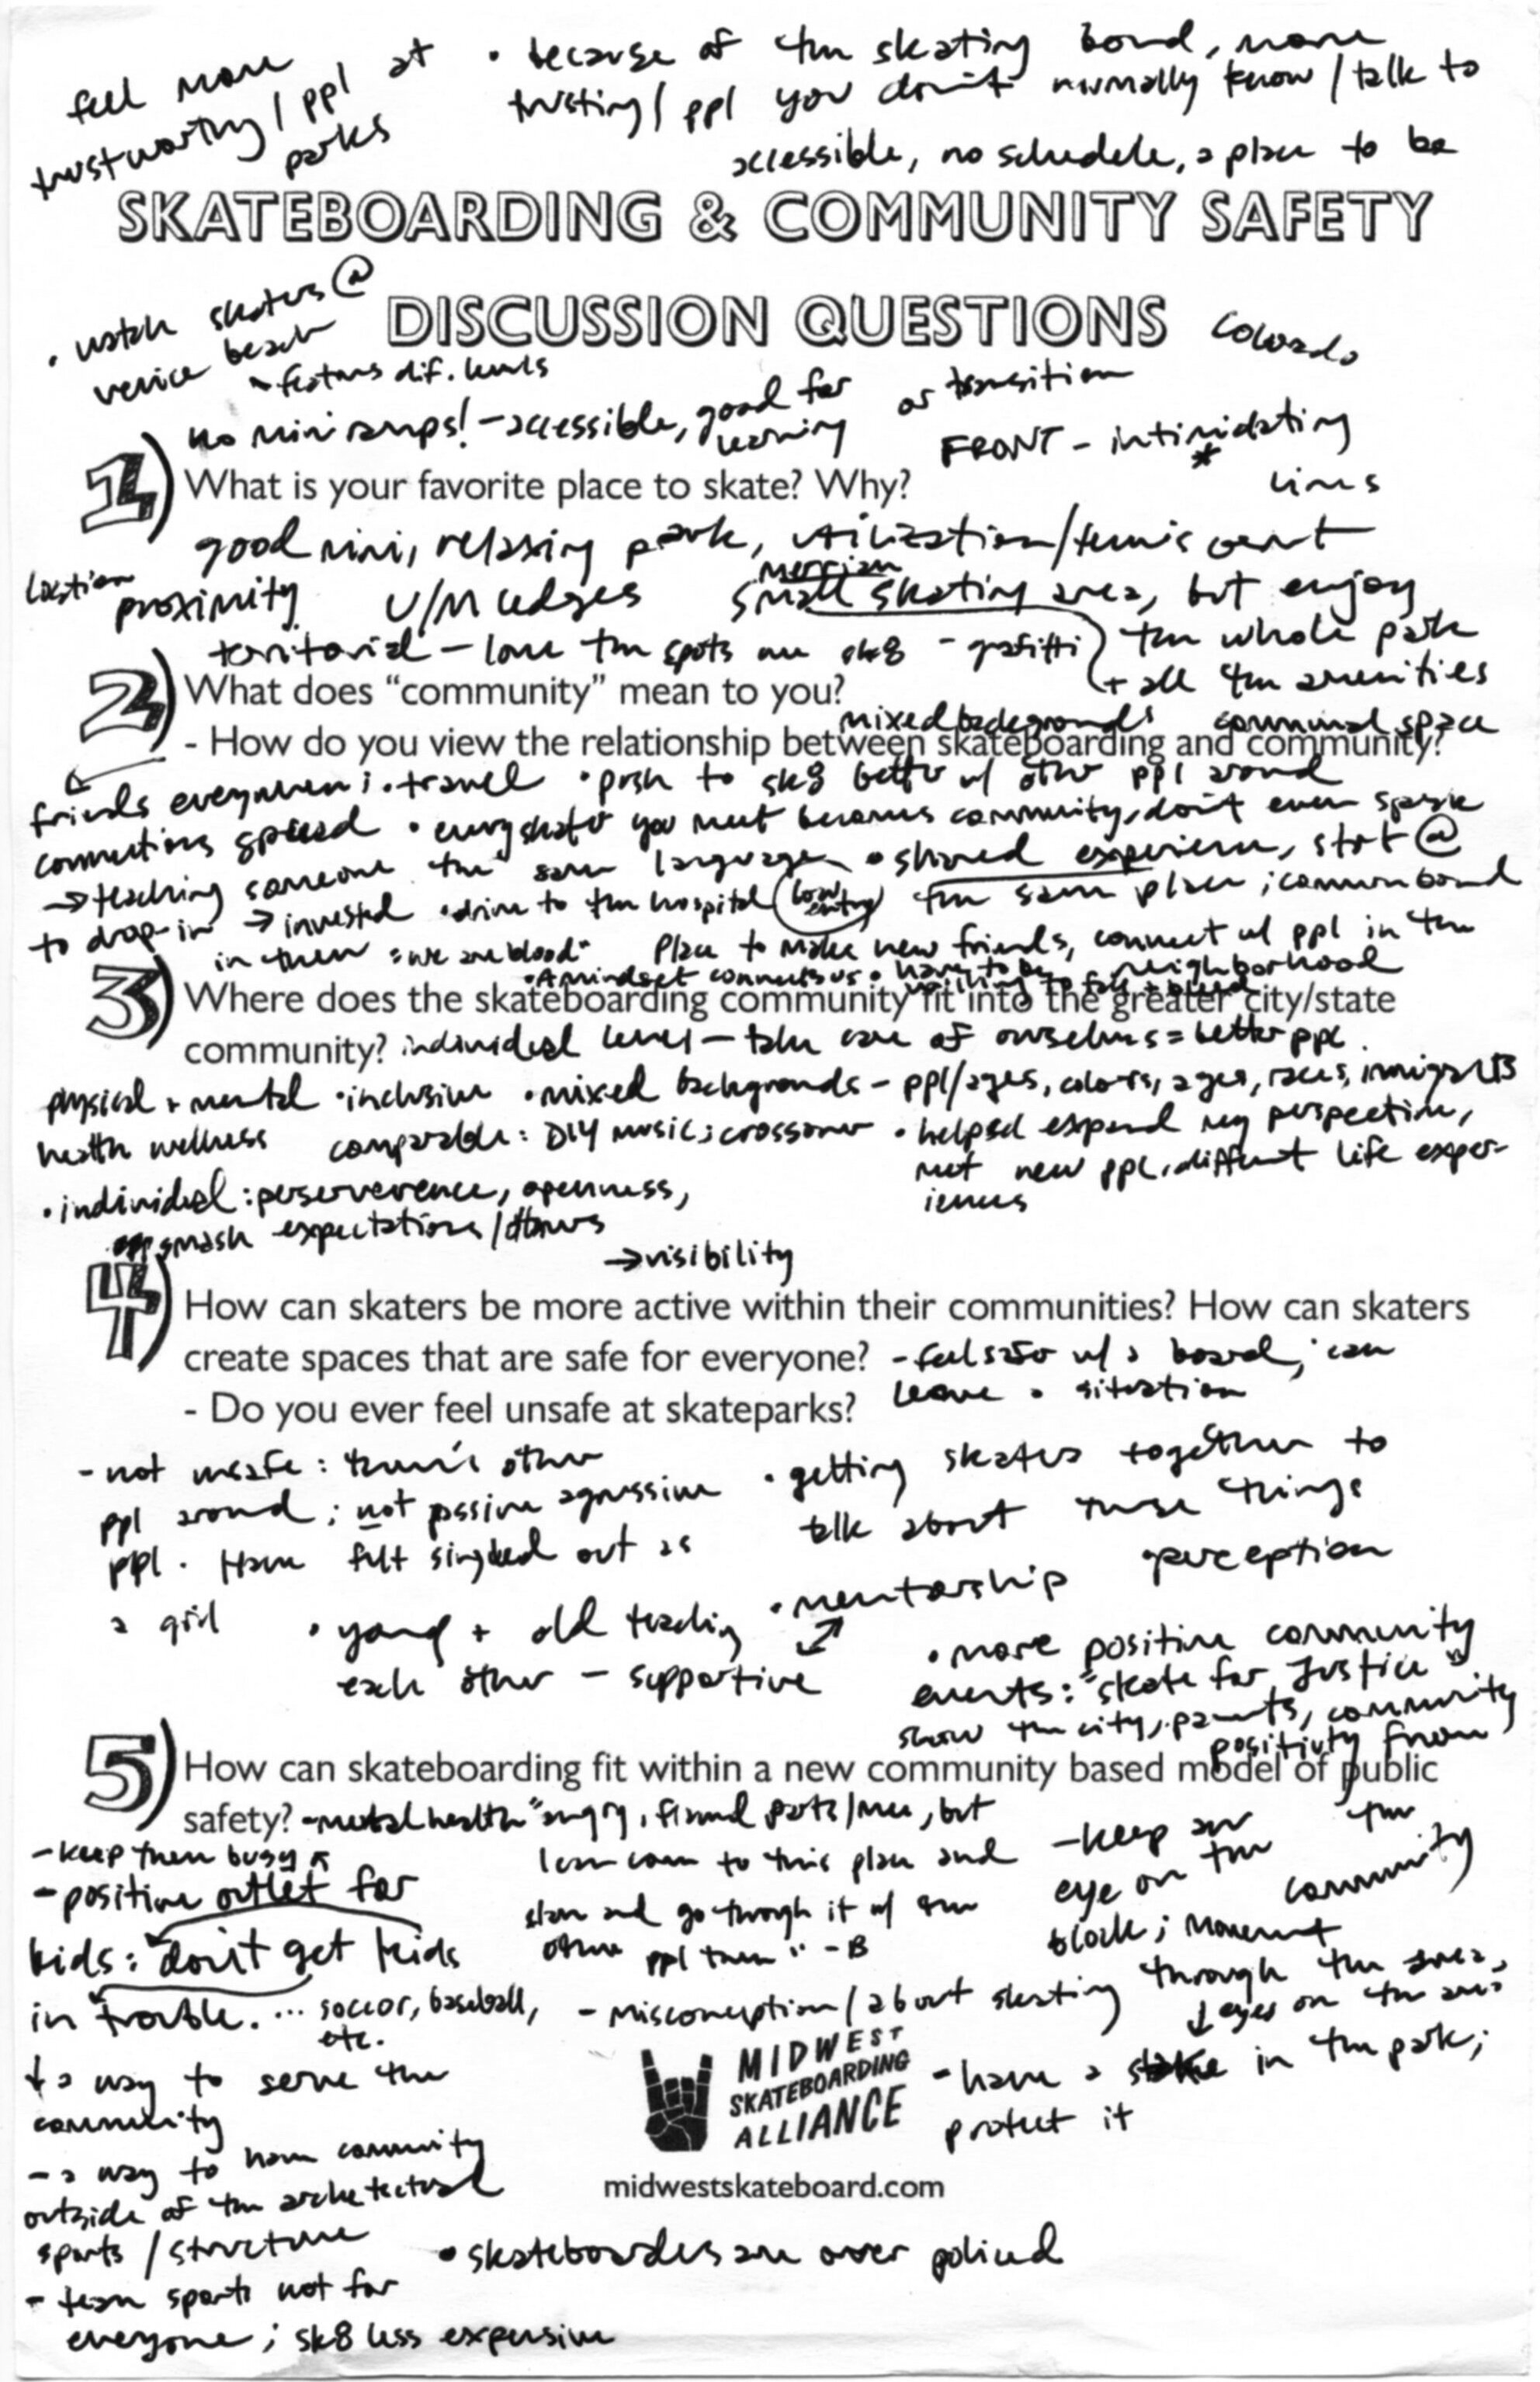 feel more
trustworthy / ppl at
parks
• because of the skating bond, more
trusting / ppl you don't normally know / talk to
accessible, no schedule, a place to be
SKATEBOARDING & COMMUNITY SAFETY
DISCUSSION QUESTIONS
• watch skaters @
venice beach
features dif. levels
Colorado
no mini ramps! – accessible, good for
learning
or transition
FRONT – intimidating
*
lines
1) What is your favorite place to skate? Why?
good mini, relaxing park, utilization / tennis court
location
proximity U/M ledges
merriam
small skating area, but enjoy
the whole park
+ all the amenities
territorial – love the spots we sk8 – grafitti
2) What does “community” mean to you?
mixed backgrounds communal space
- How do you view the relationship between skateboarding and community?
friends everywhere; • travel • push to sk8 better w/ other ppl around
connections spread • every skater you meet becomes community, don't even speak
the same language • shared experience, start @
the same place; common bond
→ teaching someone
to drop-in → invested
in them
• drive to the hospital
low entry
"we are blood"
Place to make new friends, connect w/ ppl in the
neighborhood
• A mindset connects us • have to be willing to fall + bleed
3) Where does the skateboarding community fit into the greater city/state
community? individual level – take care of ourselves = better ppl.
physical + mental
health wellness
• inclusive • mixed backgrounds – ppl/ages, colors, ages, races, immigrants
comparable: DIY music; crossover • helped expand my perspective,
met new ppl, different life exper-
iences
• individual: perserverence, openness,
smash expectations /
→ visibility
4) How can skaters be more active within their communities? How can skaters
create spaces that are safe for everyone? – feel safer w/ a board; can
leave a situation
- Do you ever feel unsafe at skateparks?
- not unsafe: there's other
ppl around; not passive agressive
ppl. Have felt singled out as
a girl
• getting skaters together to
talk about these things
• mentorship
• perception
• young + old teaching
each other – supportive
• more positive community
events: "skate for Justice"
show the city, parents, community
positivity from
the
community
5) How can skateboarding fit within a new community based model of public
safety? – mental health "angry, found park / me, but
I can come to this place and
and go through it w/ the
other ppl there" – B
- keep them busy
- positive outlet for
kids: don't get kids
in trouble. ... soccor, baseball,
etc.
a way to serve the
community
- a way to have community
outside of the
sports / structure
- team sports not for
everyone; sk8 less expensive
- keep an
eye on the
block; movement
through the area,
eyes on the area
- misconception / about skating
- have a stake in the park;
protect it
MIDWEST
SKATEBOARDING
ALLIANCE
midwestskateboard.com
• skateboarders are over policed